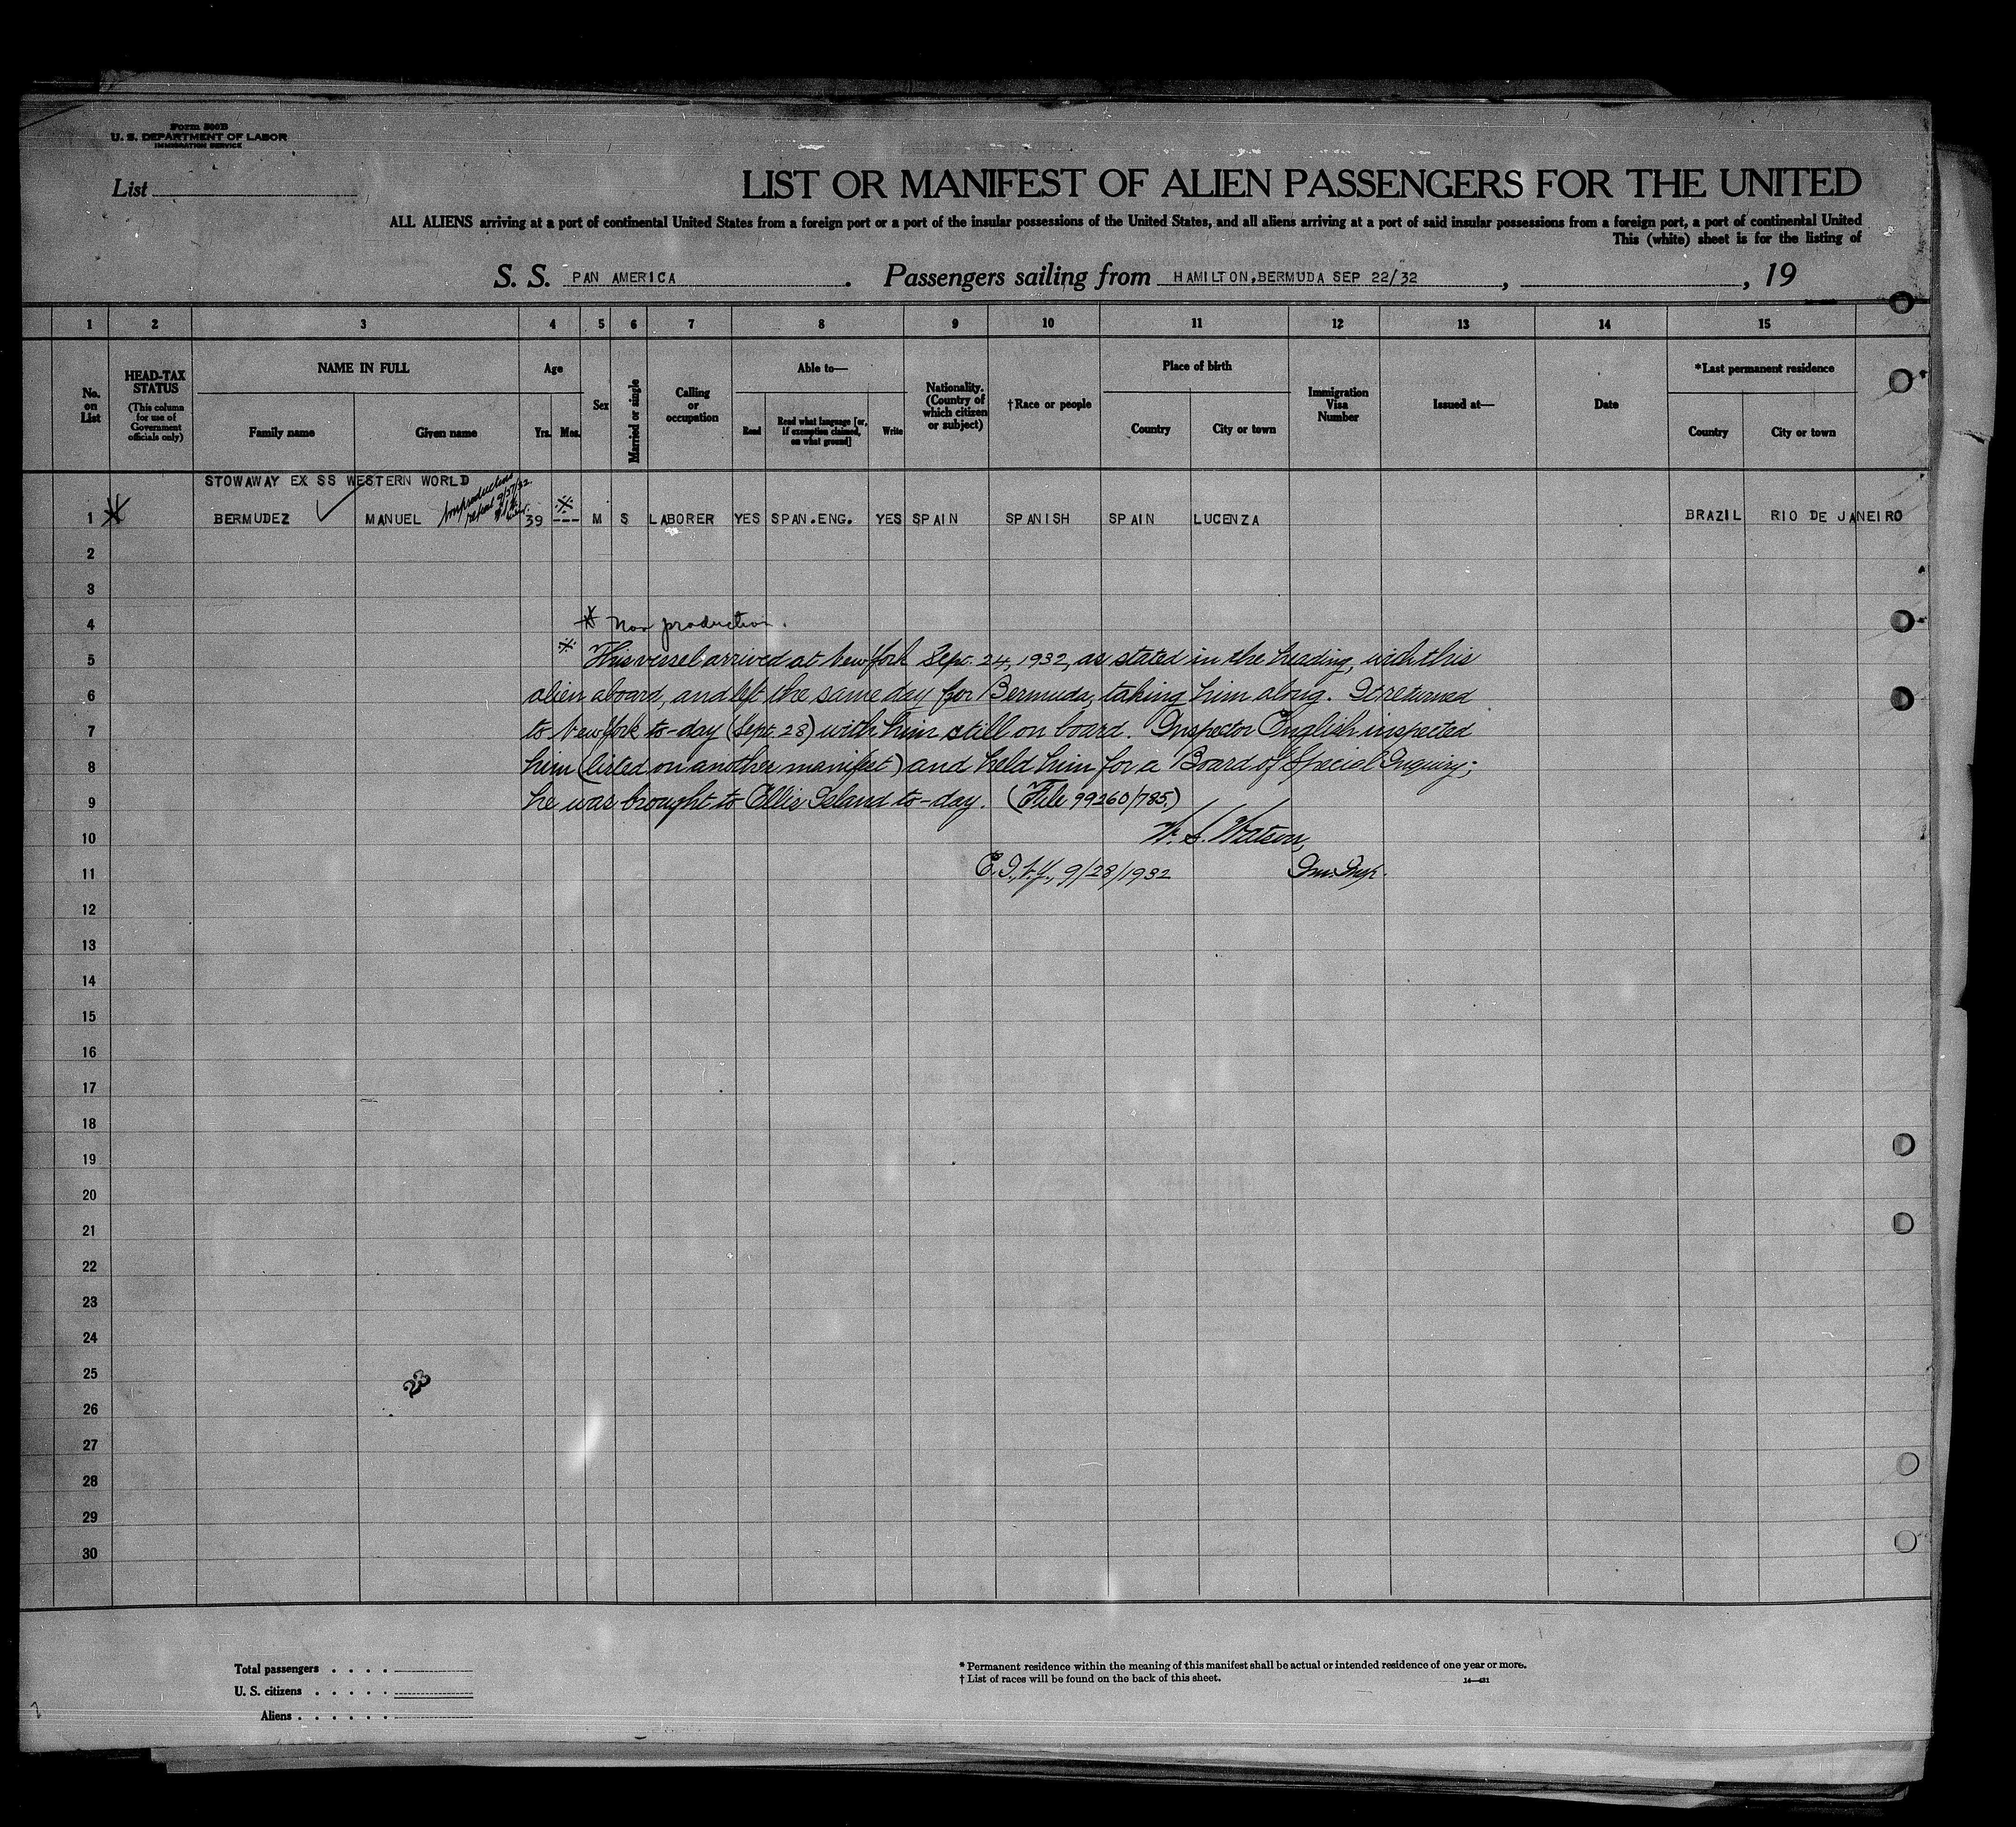 Form 500B
U. S. DEPARTMENT OF LABOR
IMMIGRATION SERVICE
List
LIST OR MANIFEST OF ALIEN PASSENGERS FOR THE UNITED
ALL ALIENS arriving at a port of continental United States from a foreign port or a port of the insular possessions of the United States, and all aliens arriving at a port of said insular possessions from a foreign port, a port of continental United
This (white) sheet is for the listing of
S. S. PAN AMERICA . Passengers sailing from HAMILTON,BERMUDA SEP 22/32 , , 19
1 2 3 4 5 6 7 8 9 10 11 12 13 14 15
No. on List
HEAD-TAX STATUS
(This column for use of Government officials only)
NAME IN FULL
Family name Given name
Age
Yrs. Mos.
Sex
Married or single
Calling or occupation
Able to—
Read
Read what language [or, if exemption claimed, on what ground]
Write
Nationality. (Country of which citizen or subject)
†Race or people
Place of birth
Country City or town
Immigration Visa Number
Issued at—
Date
*Last permanent residence
Country City or town
STOWAWAY EX SS WESTERN WORLD
1 BERMUDEZ MANUEL 39 --- M S LABORER YES SPAN.ENG. YES SPAIN SPANISH SPAIN LUCENZA BRAZIL RIO DE JANEIRO
Nonproduction
9/27/32
2
3
4 * Non production.
5 This vessel arrived at New York Sept. 24, 1932, as stated in the heading, with this
6 alien aboard, and left the same day for Bermuda, taking him along. It returned
7 to New York to-day (Sept. 28) with him still on board. Inspector English inspected
8 him (listed on another manifest) and held him for a Board of Special Inquiry;
9 he was brought to Ellis Island to-day. (File 99260/785.)
10 W. S. Watson,
11 E.I., N.Y., 9/28/1932 Im. Insp.
12
13
14
15
16
17
18
19
20
21
22
23
24
25
23
26
27
28
29
30
Total passengers . . . .
U. S. citizens . . . . .
Aliens . . . . . .
* Permanent residence within the meaning of this manifest shall be actual or intended residence of one year or more.
† List of races will be found on the back of this sheet.
14—431